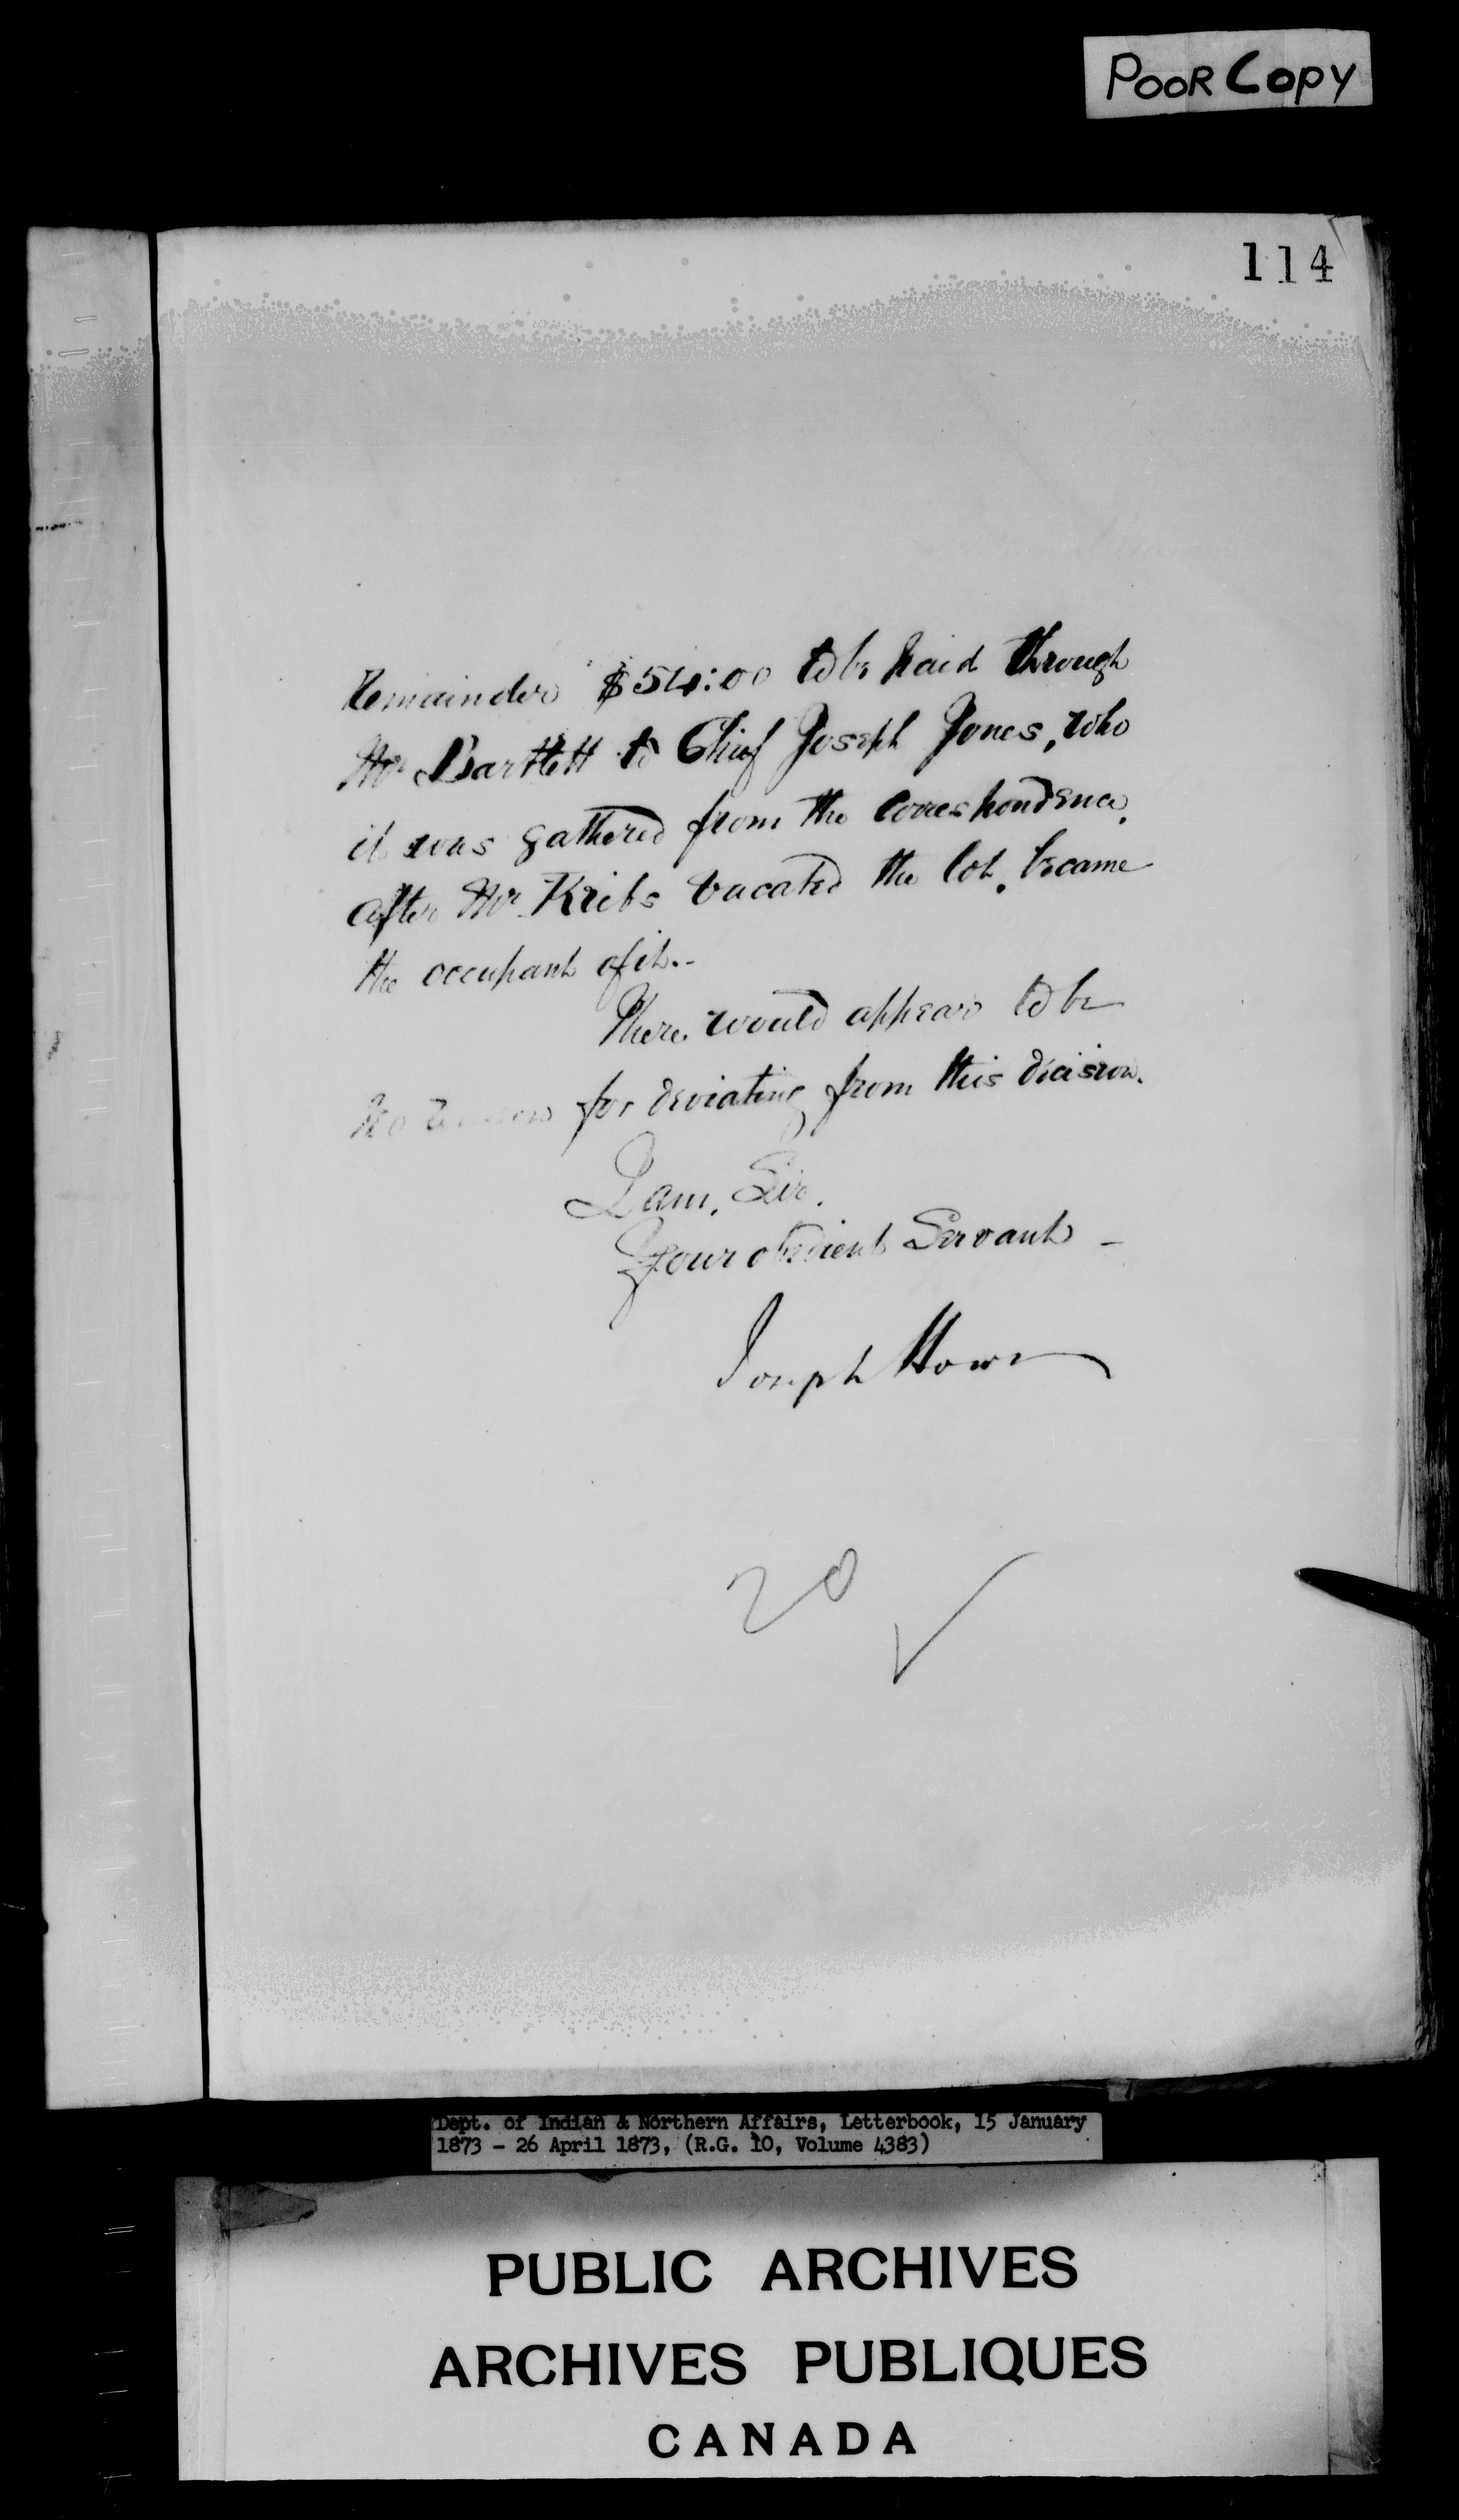 POOR COPY
114
Remainder $54:00 to be paid through
Mr Bartlett to Chief Joseph Jones, who
it was gathered from the correspondence,
after Mr Kribs vacated the lot, became
the occupant of it.-
There would appear to be
no reason for deviating from this decision.
I am, Sir,
Your obedient Servant -
Joseph Howe
20
Dept. of Indian & Northern Affairs, Letterbook, 15 January
1873 - 26 April 1873, (R.G. 10, Volume 4383)
PUBLIC ARCHIVES
ARCHIVES PUBLIQUES
CANADA